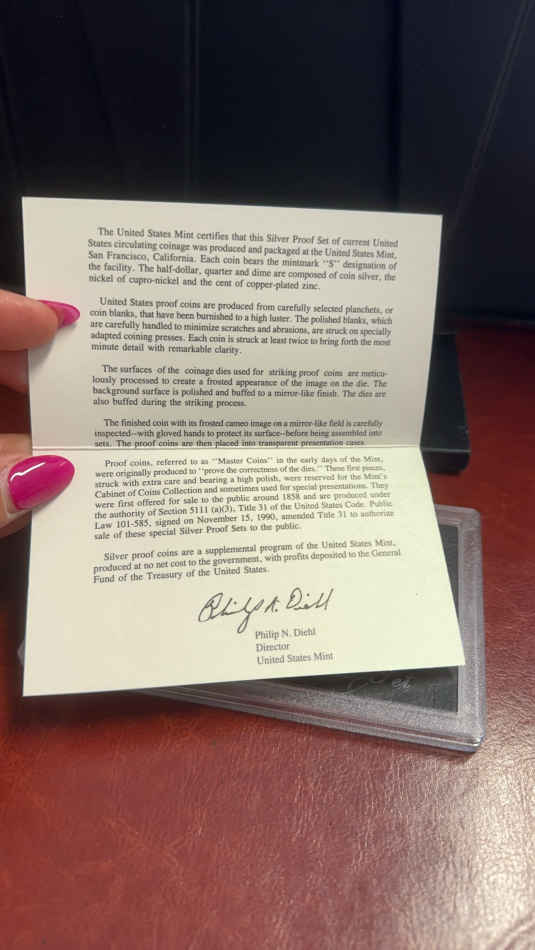 The United States Mint certifies that this Silver Proof Set of current United
States circulating coinage was produced and packaged at the United States Mint,
San Francisco, California. Each coin bears the mintmark "S" designation of
the facility. The half-dollar, quarter and dime are composed of coin silver, the
nickel of cupro-nickel and the cent of copper-plated zinc.
United States proof coins are produced from carefully selected planchets, or
coin blanks, that have been burnished to a high luster. The polished blanks, which
are carefully handled to minimize scratches and abrasions, are struck on specially
adapted coining presses. Each coin is struck at least twice to bring forth the most
minute detail with remarkable clarity.
The surfaces of the coinage dies used for striking proof coins are meticu-
lously processed to create a frosted appearance of the image on the die. The
background surface is polished and buffed to a mirror-like finish. The dies are
also buffed during the striking process.
The finished coin with its frosted cameo image on a mirror-like field is carefully
inspected--with gloved hands to protect its surface--before being assembled into
sets. The proof coins are then placed into transparent presentation cases.
Proof coins, referred to as "Master Coins" in the early days of the Mint,
were originally produced to "prove the correctness of the dies." These first pieces,
struck with extra care and bearing a high polish, were reserved for the Mint's
Cabinet of Coins Collection and sometimes used for special presentations. They
were first offered for sale to the public around 1858 and are produced under
the authority of Section 5111 (a)(3), Title 31 of the United States Code. Public
Law 101-585, signed on November 15, 1990, amended Title 31 to authorize
sale of these special Silver Proof Sets to the public.
Silver proof coins are a supplemental program of the United States Mint,
produced at no net cost to the government, with profits deposited to the General
Fund of the Treasury of the United States.
Philip N. Diehl
Philip N. Diehl
Director
United States Mint